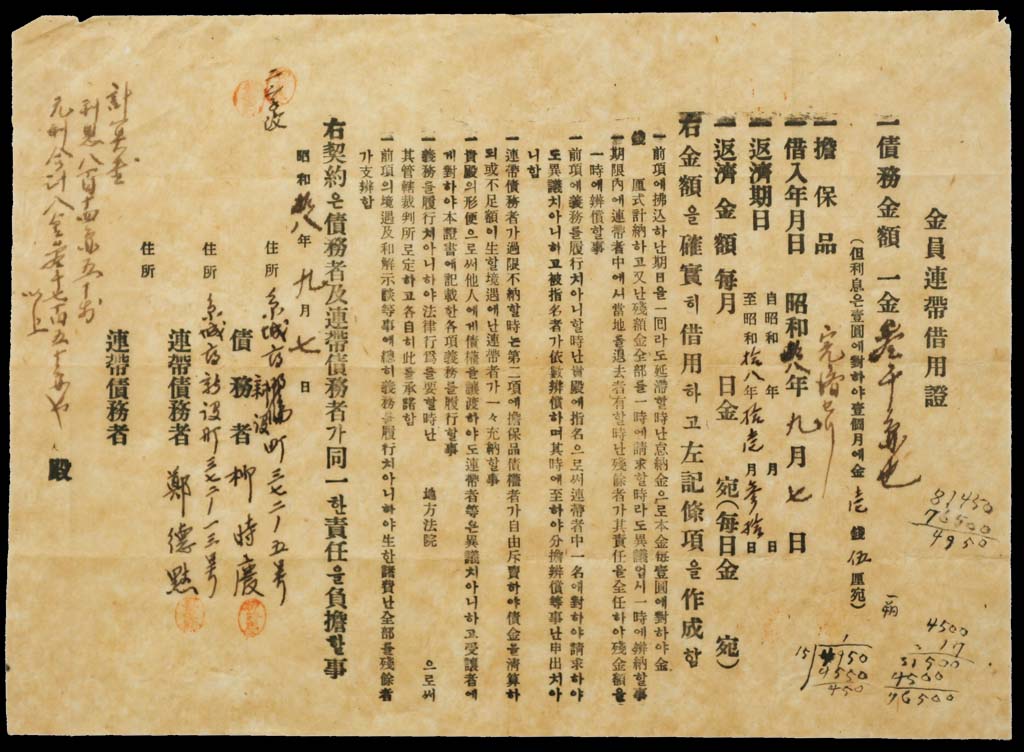 金員連帶借用證
一債務金額 一金參千圓也
(但利息은壹圓에對하야壹個月에金壱錢伍厘宛)
一擔保品
一借入年月日 昭和拾八年九月七日
一返濟期日 自昭和 年 月 日
至昭和拾八年拾壱月參拾日
一返濟金額 每月 日金 宛(每日金 宛)
右金額을確實히借用하고左記條項을作成함
一前項에拂込하난期日을一回라도延滯할時난怠納金으로本金每壹圓에對하야金
錢 厘式計納하고又난殘額金全部를一時에請求할時라도異議업시一時에辨納할事
一期限內에連帶者中에셔當地를退去者有할時난殘餘者가其責任을全任하야殘金額을
一時에辨償할事
一前項에義務를履行치아니할時난貴殿에指名으로써連帶者中一名에對하야請求하야
도異議치아니하고被指名者가依數辨償하며其時에至하야分擔辨償等事난申出치아
니함
一連帶債務者가過限不納할時는第二項에擔保品債權者가自由斥賣하야債金을淸算하
되或不足額이生할境遇에난連帶者가一々充納할事
一貴殿의形便으로써他人에게債權을讓渡하야도連帶者等은異議치아니하고受讓者에
게對하야本證書에記載한各項義務를履行할事
一義務를履行치아니하야法律行爲를要할時난 地方法院 으로써
其管轄裁判所로定하고各自히此를承諾함
一前項의境遇及和解示談等事에總히義務를履行치아니하야生한諸費난全部를殘餘者
가支辨함
右契約은債務者及連帶債務者가同一한責任을負擔할事
昭和拾八年九月七日
住所 京城府新設町三七二ノ五号
債務者 柳時慶
住所 京城府新設町三七二ノ一三号
連帶債務者 鄭德點
住所
連帶債務者
殿
計算書
利息八百十四円五十戔
81450
76500
4950
4500
17
31500
4500
76500
15
4950
4550
450